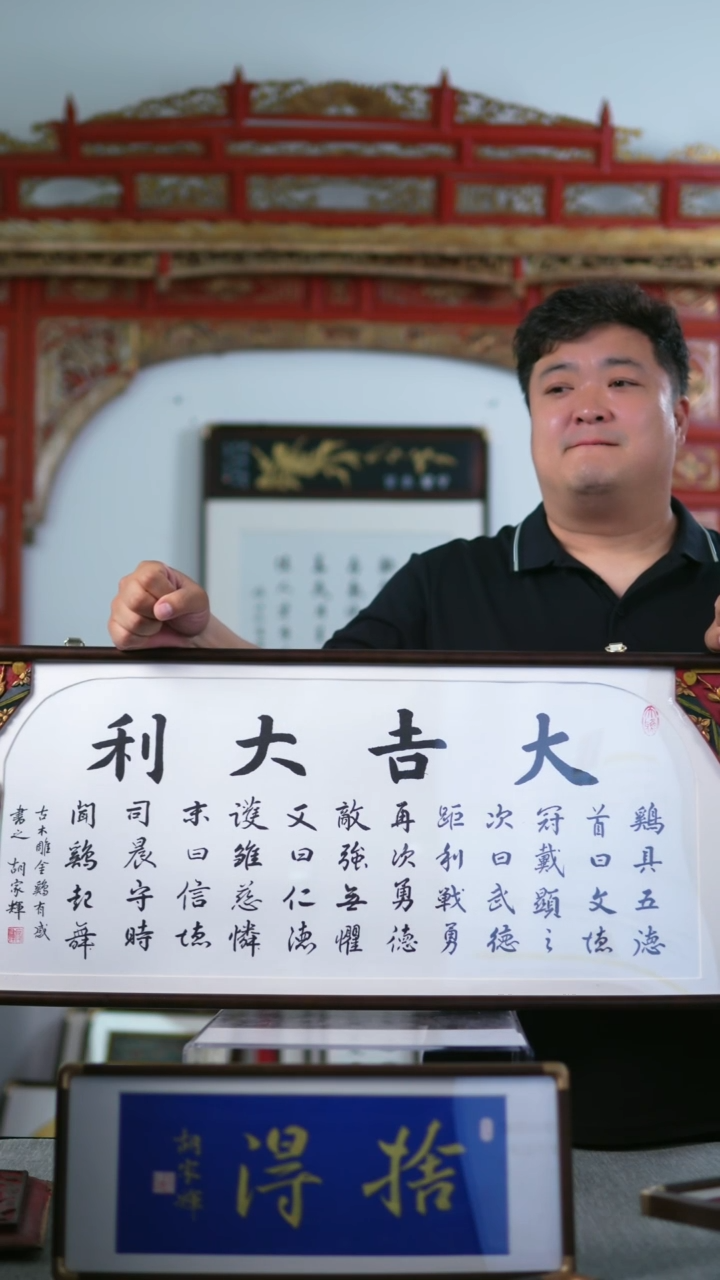 大吉大利
鷄具五德
首曰文德
冠戴顯之
次曰武德
距利戰勇
再次勇德
敵強無懼
又曰仁德
護雛慈憐
末曰信德
司晨守時
聞鷄起舞
古木雕金鷄有感
書之 胡家輝
捨得
胡家輝